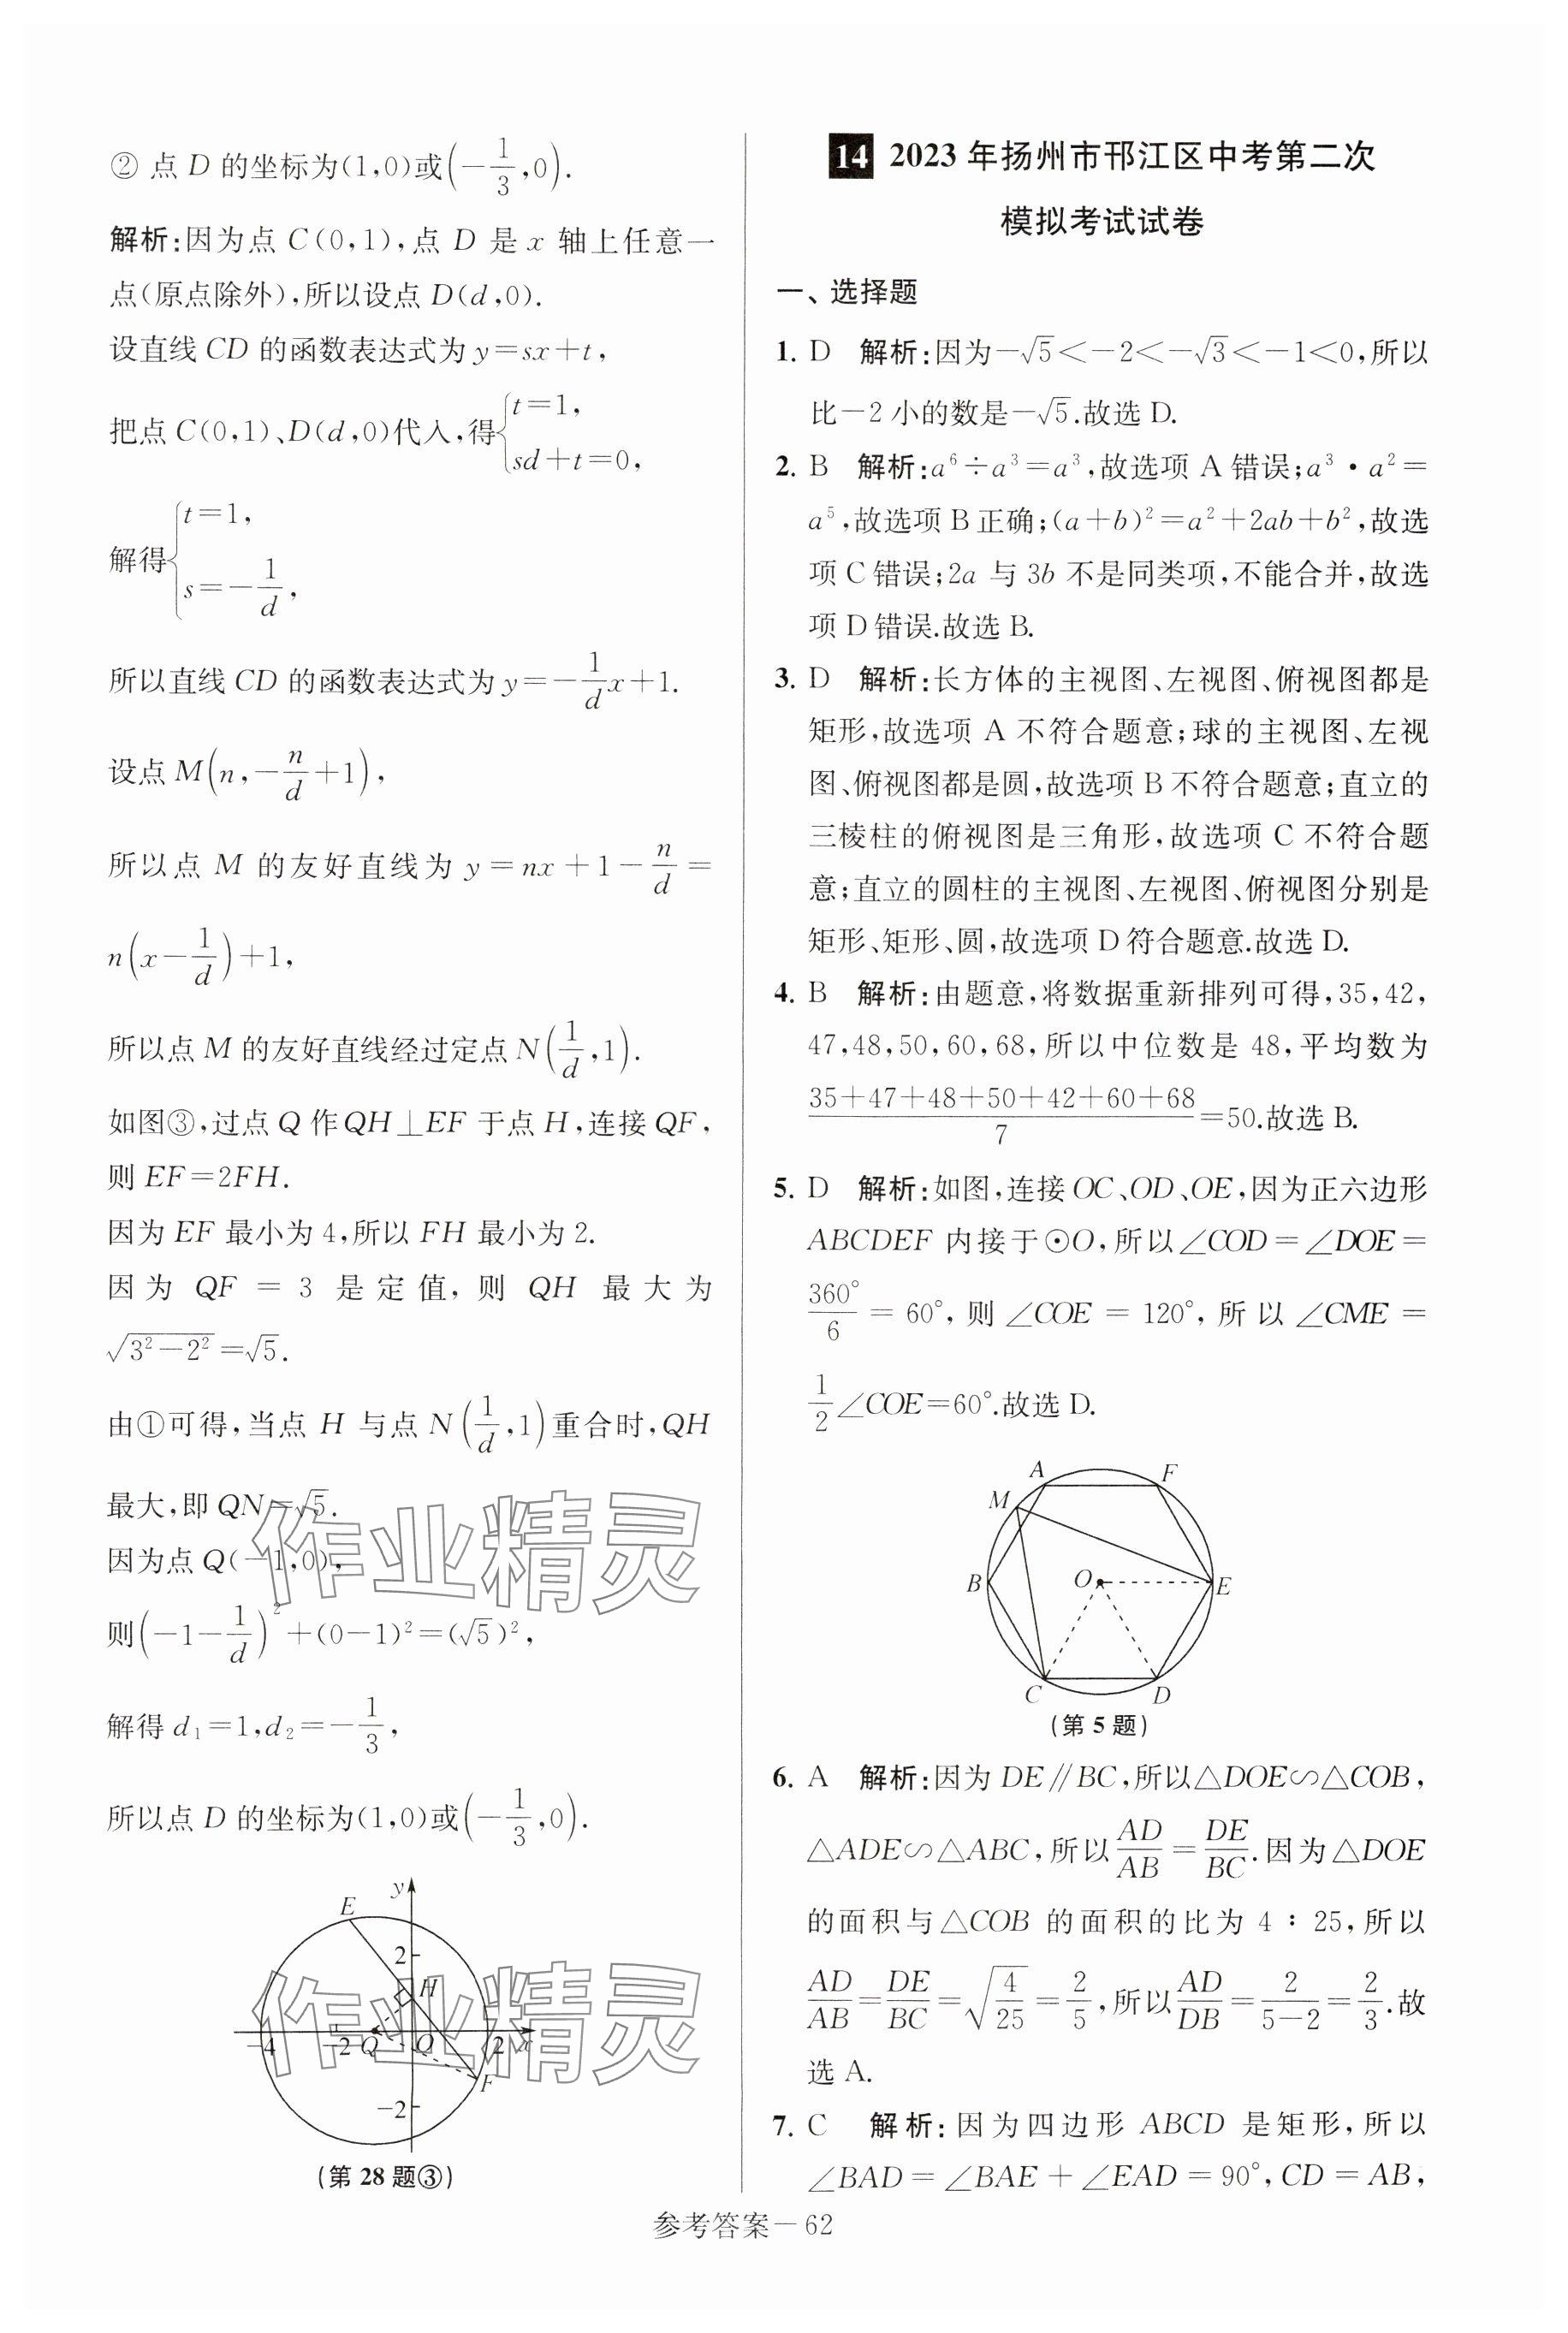 ② 点 D 的坐标为(1,0)或(-1/3,0).
解析:因为点 C(0,1),点 D 是 x 轴上任意一
点(原点除外),所以设点 D(d,0).
设直线 CD 的函数表达式为 y=sx+t,
把点 C(0,1)、D(d,0)代入,得{t=1, sd+t=0,
解得{t=1, s=-1/d,
所以直线 CD 的函数表达式为 y=-1/d x+1.
设点 M(n,-n/d+1),
所以点 M 的友好直线为 y=nx+1-n/d=
n(x-1/d)+1,
所以点 M 的友好直线经过定点 N(1/d,1).
如图③,过点 Q 作 QH⊥EF 于点 H,连接 QF,
则 EF=2FH.
因为 EF 最小为 4,所以 FH 最小为 2.
因为 QF = 3 是定值,则 QH 最大为
√(3²-2²)=√5.
由①可得,当点 H 与点 N(1/d,1)重合时,QH
最大,即 QN=√5.
因为点 Q(-1,0),
则(-1-1/d)²+(0-1)²=(√5)²,
解得 d₁=1,d₂=-1/3,
所以点 D 的坐标为(1,0)或(-1/3,0).
y
E
2
H
-4
-2
Q
O
2
x
F
-2
(第 28 题③)
14 2023 年扬州市邗江区中考第二次
模拟考试试卷
一、选择题
1. D 解析:因为-√5<-2<-√3<-1<0,所以
比-2 小的数是-√5.故选 D.
2. B 解析:a⁶÷a³=a³,故选项 A 错误;a³·a²=
a⁵,故选项 B 正确;(a+b)²=a²+2ab+b²,故选
项 C 错误;2a 与 3b 不是同类项,不能合并,故选
项 D 错误.故选 B.
3. D 解析:长方体的主视图、左视图、俯视图都是
矩形,故选项 A 不符合题意;球的主视图、左视
图、俯视图都是圆,故选项 B 不符合题意;直立的
三棱柱的俯视图是三角形,故选项 C 不符合题
意;直立的圆柱的主视图、左视图、俯视图分别是
矩形、矩形、圆,故选项 D 符合题意.故选 D.
4. B 解析:由题意,将数据重新排列可得,35,42,
47,48,50,60,68,所以中位数是 48,平均数为
(35+47+48+50+42+60+68)/7=50.故选 B.
5. D 解析:如图,连接 OC、OD、OE,因为正六边形
ABCDEF 内接于⊙O,所以∠COD=∠DOE=
360°/6=60°,则∠COE=120°,所以∠CME=
1/2∠COE=60°.故选 D.
A
F
M
B
O
E
C
D
(第 5 题)
6. A 解析:因为 DE∥BC,所以△DOE∽△COB,
△ADE∽△ABC,所以AD/AB=DE/BC.因为△DOE
的面积与△COB 的面积的比为 4∶25,所以
AD/AB=DE/BC=√(4/25)=2/5,所以AD/DB=2/(5-2)=2/3.故
选 A.
7. C 解析:因为四边形 ABCD 是矩形,所以
∠BAD=∠BAE+∠EAD=90°,CD=AB,
参考答案-62
作业精灵
作业精灵